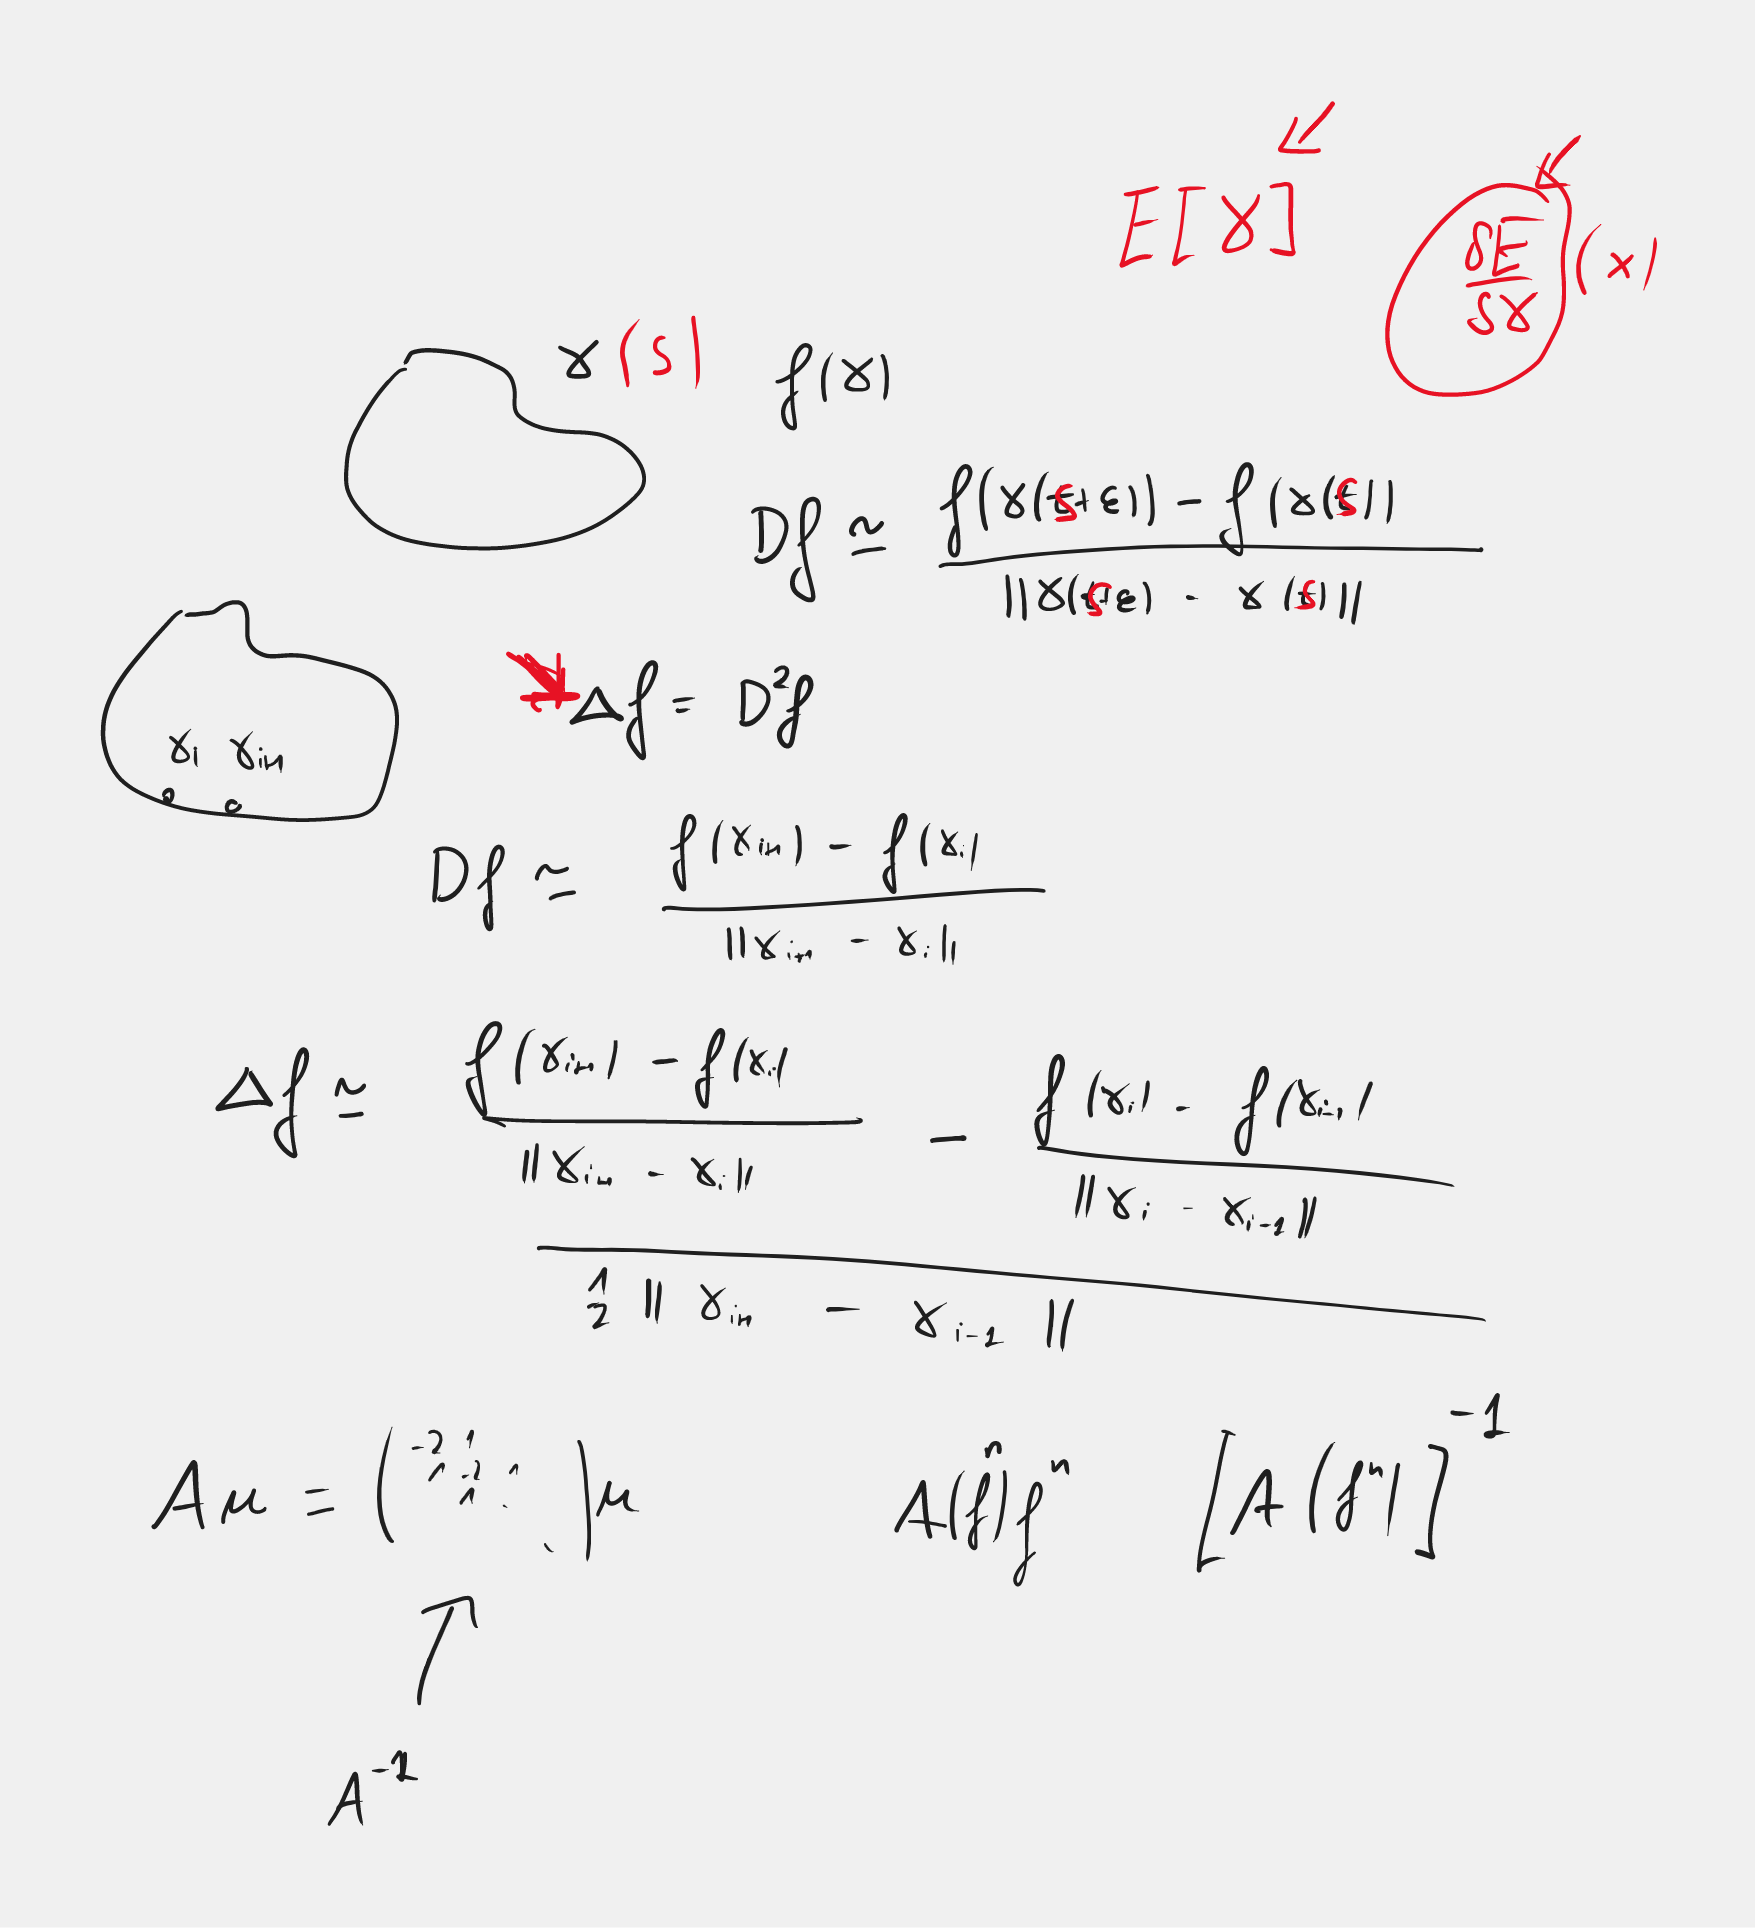 E[γ]
δE/δγ (x)
γ(s) f(γ)
Df ≃ (f(γ(s+ε)) - f(γ(s))) / ||γ(s+ε) - γ(s)||
Δf = D²f
γi γi+1
Df ≃ (f(γi+1) - f(γi)) / ||γi+1 - γi||
Δf ≃ ((f(γi+1) - f(γi)) / ||γi+1 - γi|| - (f(γi) - f(γi-1)) / ||γi - γi-1||) / (1/2 ||γi+1 - γi-1||)
Au = (-2 1 1 -2 1 1 ⋱)u A(fⁿ)fⁿ [A(fⁿ)]⁻¹
A⁻¹